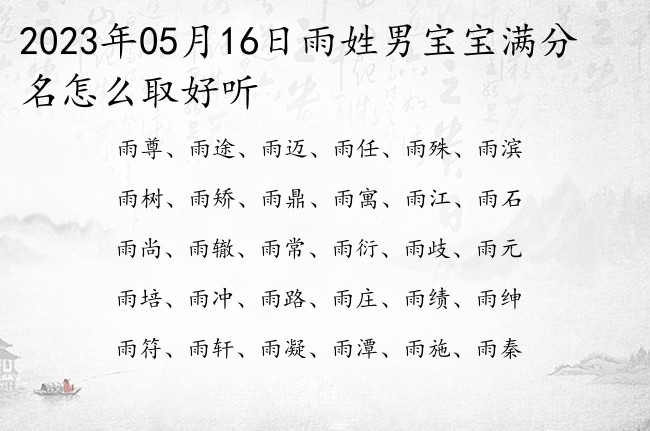 2023年05月16日雨姓男宝宝满分
名怎么取好听
雨尊、雨途、雨迈、雨任、雨殊、雨滨
雨树、雨矫、雨鼎、雨寓、雨江、雨石
雨尚、雨辙、雨常、雨衍、雨歧、雨元
雨培、雨冲、雨路、雨庄、雨绩、雨绅
雨符、雨轩、雨凝、雨潭、雨施、雨秦